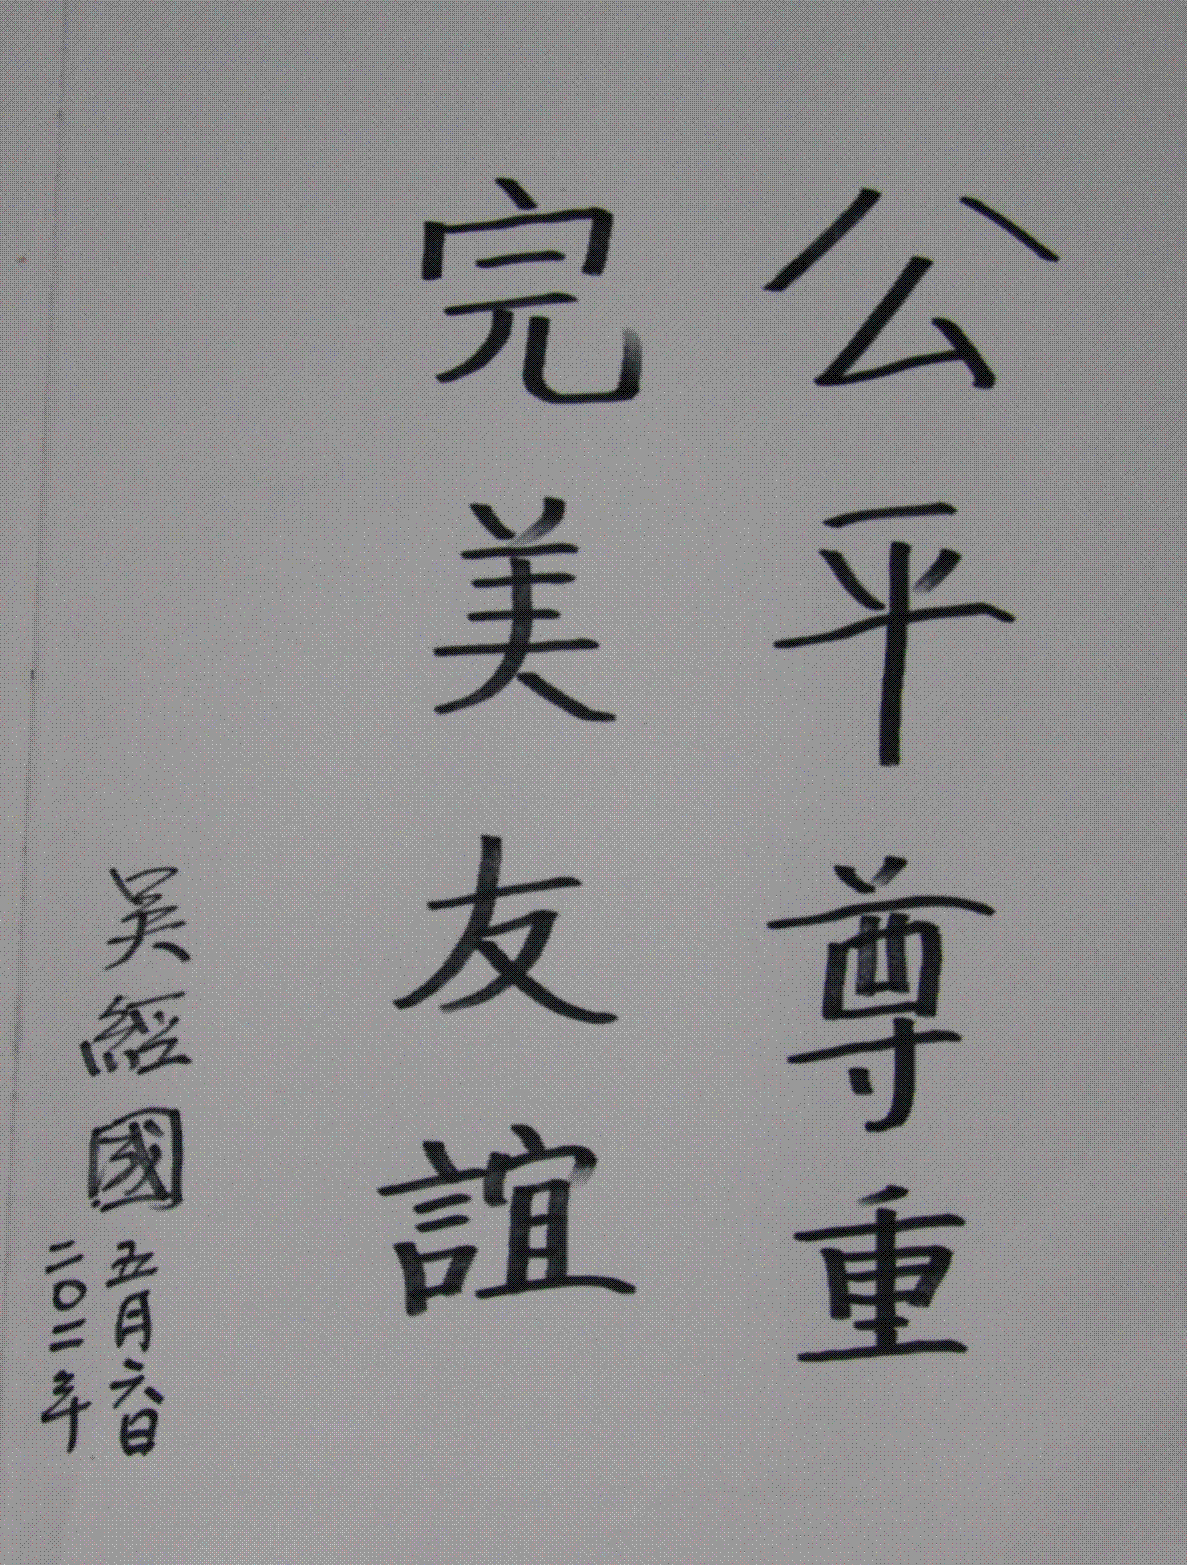 公平尊重
完美友誼
吳經國
五月六日
二〇一二年